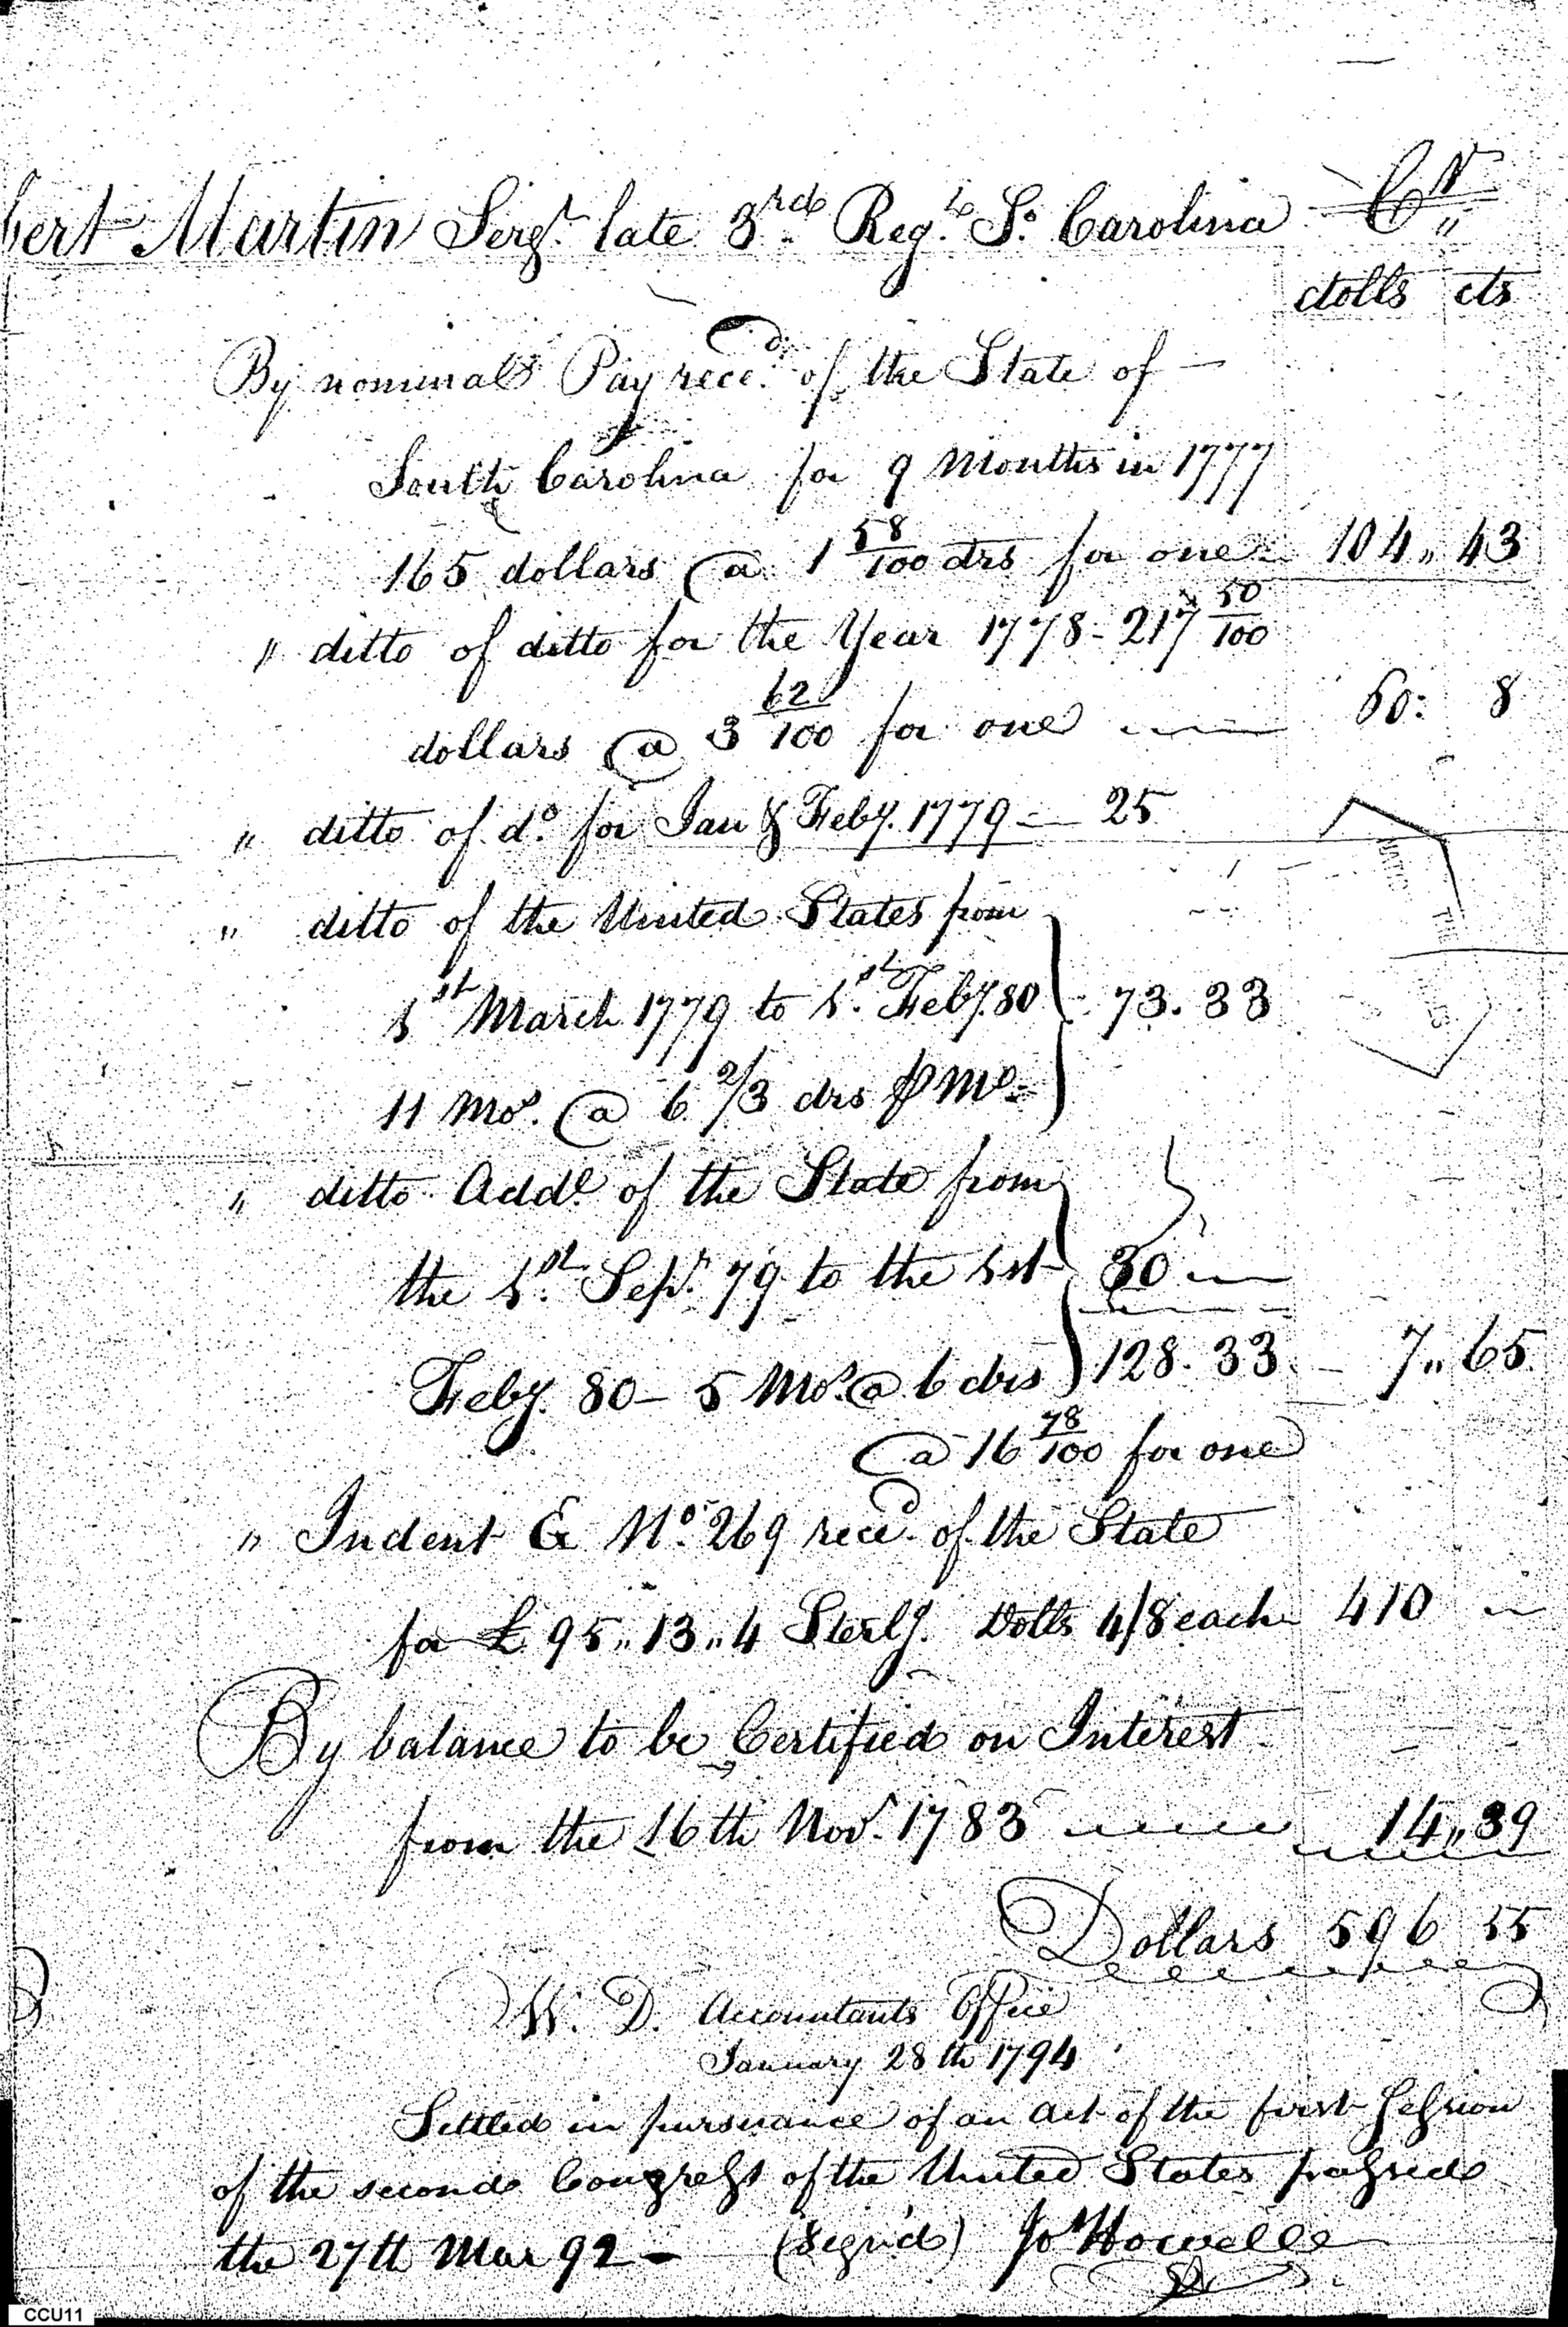 bert Martin Sergt. late 3rd Regt. So. Carolina Cr.
dolls cts
By nominal Pay recd. of the State of
South Carolina for 9 Months in 1777
165 dollars @ 1 58/100 drs for one 104 43
" ditto of ditto for the Year 1778 - 217 50/100
dollars @ 3 62/100 for one 60 8
" ditto of do. for Jan & Feby. 1779 25
" ditto of the United States from
1st March 1779 to 1st. Feby. 80 73.33
11 Mos. @ 6 2/3 drs ⅌ Mo.
" ditto Addl of the State from
the 1st. Sepr. 79 to the 1st 30
Feby. 80 - 5 Mos. @ 6 drs 128.33 7 " 65
@ 16 78/100 for one
" Indent & No. 269 recd. of the State
for £ 95 " 13 " 4 Sterlg. Dolls 4/8 each 410
By balance to be Certified on Interest
from the 16th Novr. 1783 14 " 39
Dollars 596 55
W. D. Accountants Office
January 28th 1794
Settled in pursuance of an act of the first Session
of the second Congress of the United States passed
the 27th Mar 92 - (Signd) Jos Howell
CCU11